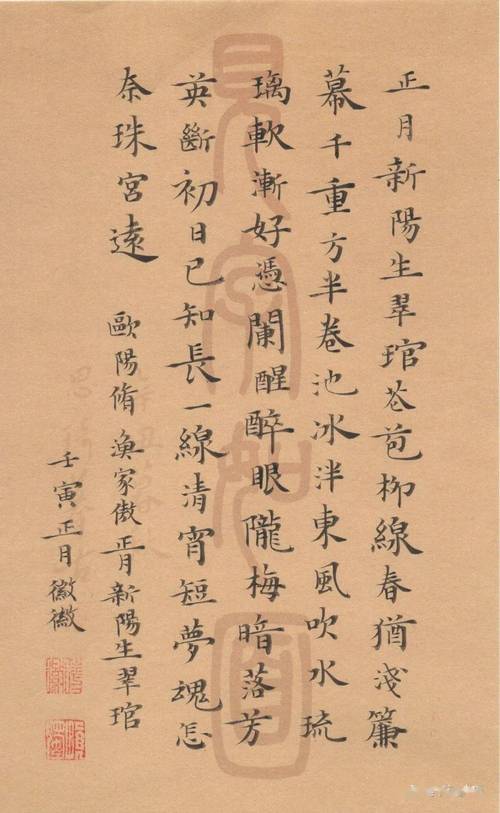 正月新陽生翠琯花苞栁線春猶淺簾
幕千重方半卷池冰泮東風吹水琉
璃軟漸好憑闌醒醉眼隴梅暗落芳
英斷初日已知長一線清宵短夢魂怎
奈珠宮遠
歐陽脩 漁家傲 正月新陽生翠琯
壬寅正月徽徽
見字如面